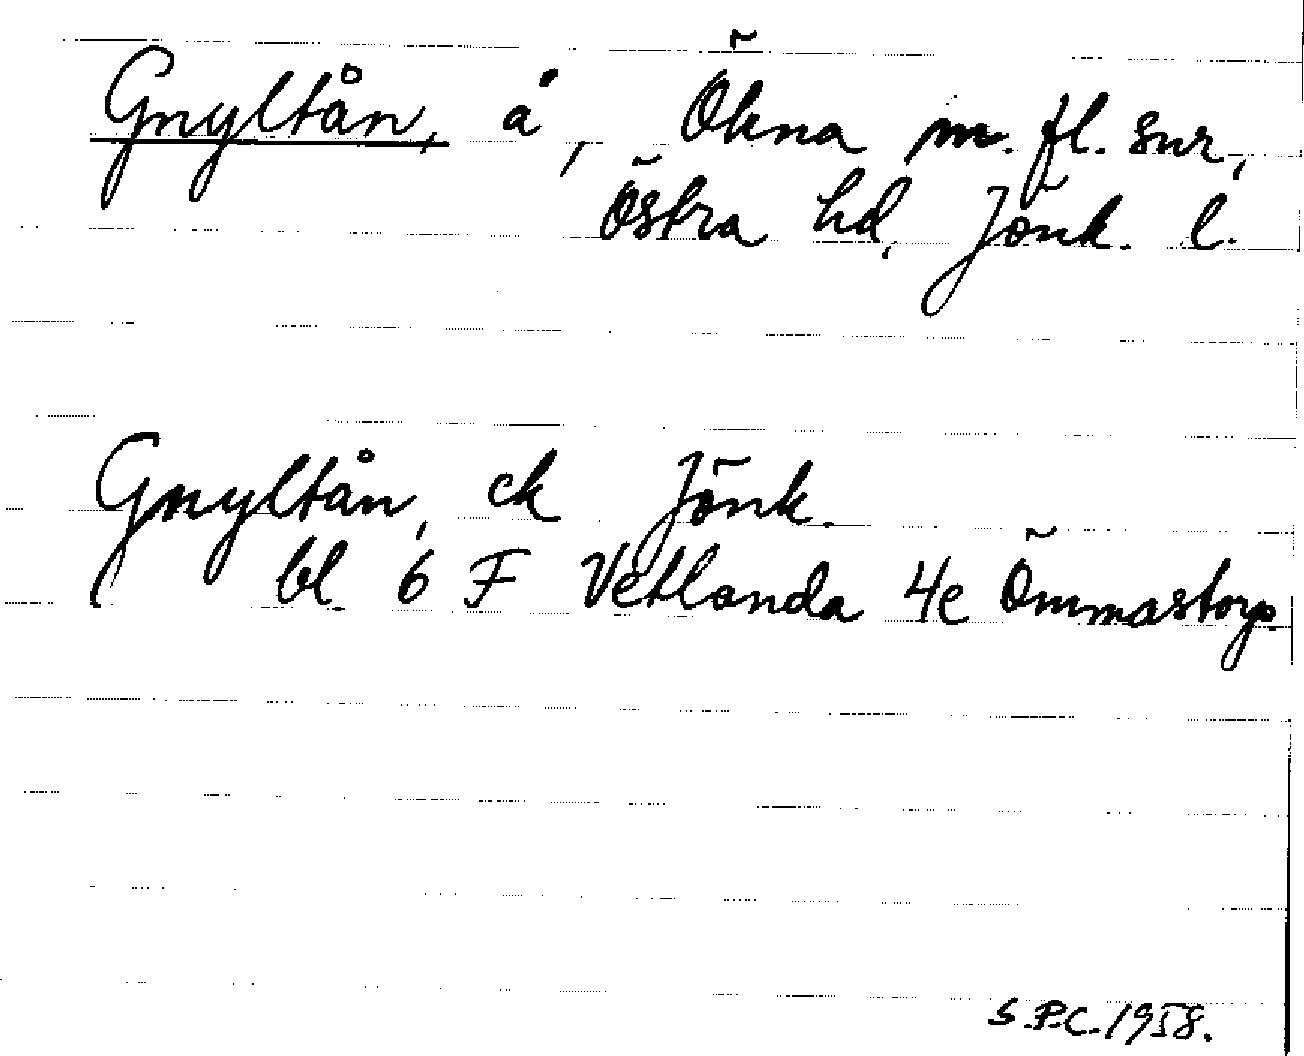 Gnyltån, å, Ökna m. fl. snr,
Östra hd, Jönk. l.
Gnyltån, ek Jönk.
bl. 6 F Vetlanda 4e Ömmastorp.
S.P.C. 1958.